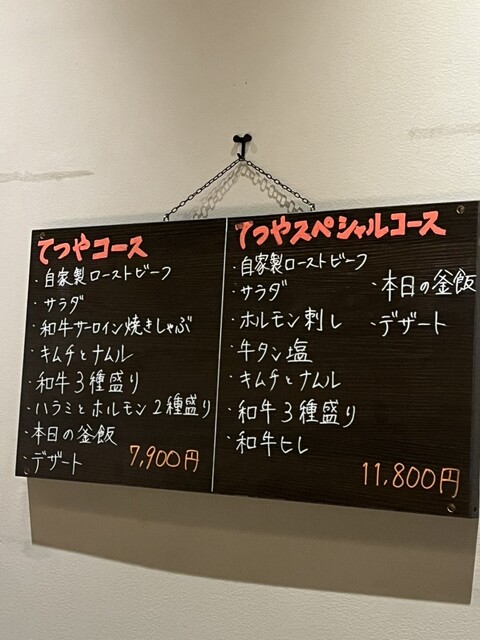 てつやコース
・自家製ローストビーフ
・サラダ
・和牛サーロイン焼きしゃぶ
・キムチとナムル
・和牛3種盛り
・ハラミとホルモン2種盛り
・本日の釜飯
・デザート
7,900円
てつやスペシャルコース
・自家製ローストビーフ
・サラダ
・ホルモン刺し
・牛タン塩
・キムチとナムル
・和牛3種盛り
・和牛ヒレ
・本日の釜飯
・デザート
11,800円